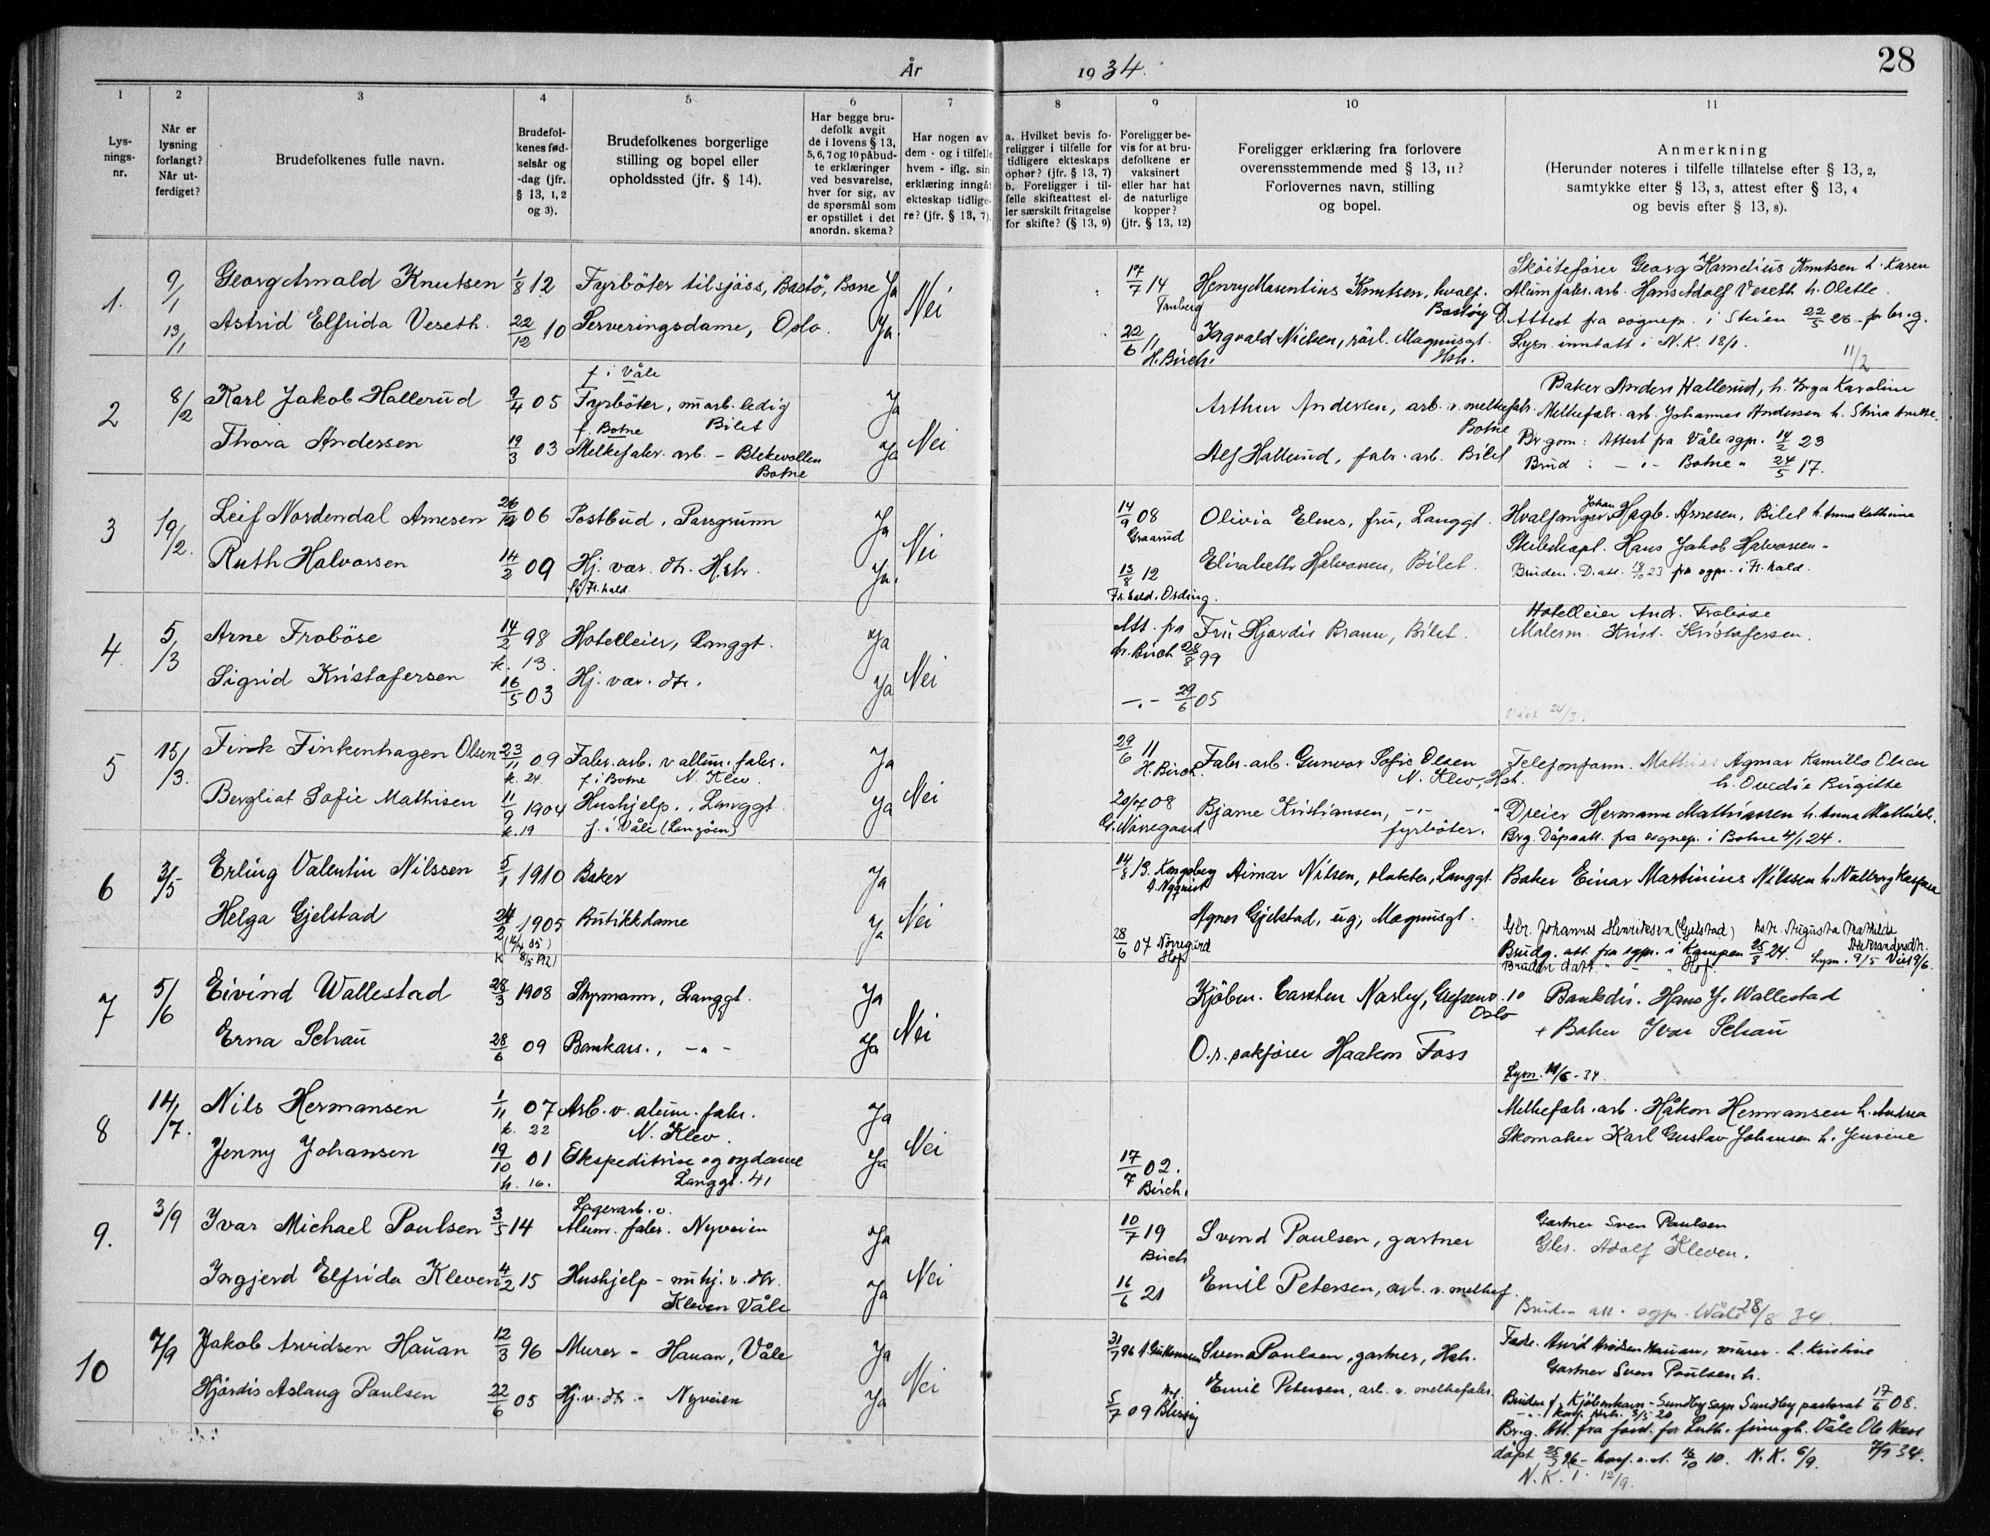 28
År 1934.
1 2 3 4 5 6 7 8 9 10 11
Lys-
nings-
nr.
Når er
lysning
forlangt?
Når ut-
ferdiget?
Brudefolkenes fulle navn.
Brudefol-
kenes fød-
selsår og
-dag (jfr.
§ 13, 1, 2
og 3).
Brudefolkenes borgerlige
stilling og bopel eller
opholdssted (jfr. § 14).
Har begge bru-
defolk avgit
de i lovens § 13,
5, 6, 7 og 10 påbud-
te erklæringer
ved besvarelse,
hver for sig, av
de spørsmål som
er opstillet i det
anordn. skema?
Har nogen av
dem - og i tilfelle
hvem - iflg. sin
erklæring inngåt
ekteskap tidlige-
re? (jfr. § 13, 7).
a. Hvilket bevis fo-
religger i tilfelle for
tidligere ekteskaps
ophør? (jfr. § 13, 7)
b. Foreligger i til-
felle skifteattest el-
ler særskilt fritagelse
for skifte? (§ 13, 9)
Foreligger be-
vis for at bru-
defolkene er
vaksinert
eller har hat
de naturlige
kopper?
(jfr. § 13, 12)
Foreligger erklæring fra forlovere
overensstemmende med § 13, 11?
Forlovernes navn, stilling
og bopel.
Anmerkning
(Herunder noteres i tilfelle tillatelse efter § 13, 2,
samtykke efter § 13, 3, attest efter § 13, 4
og bevis efter § 13, 8).
1. 9/1 Georg Arnald Knutsen 1/8 12 Fyrbøter tilsjøss, Bastö, Borre Ja Nei 17/7 14 Henry Marentius Knutsen, hvalf. Bastöy Skøitefører Georg Kornelius Knutsen h. Karen
13/1 Astrid Elfrida Veseth. 22/12 10 Serveringsdame, Oslo. Ja. 22/6 11 H. Birch. Ingvald Nielsen, rørl. Magnusgt. Hstr. Alum fabr. arb. Hans Adolf Veseth h. Olette
D. Attest fra sognep. i Skien 22/5 26 for br.g.
Lysn. inntatt i N.K. 18/1. 11/2
2 8/2 Karl Jakob Hallerud 9/4 05 f. i Våle Fyrbøter, nu arb. ledig Bilet Ja Arthur Andersen, arb. v. melkefabr. Botne Baker Anders Hallerud, h. Inga Karoline
Thora Andersen 19/3 03 f. Botne Melkefabr. arb. - Blekevollen Botne Ja Nei Alf Hallerud, fabr. arb. Bilet Melkefabr. arb. Johannes Andersen h. Stina
Br.gom: Attest fra Våle sgp. 14/2 23
Brud: - " - Botne " 24/5 17.
3 19/2. Leif Nordendal Arnesen 26/12 06 Postbud, Porsgrunn Ja Nei 14/9 08 Graarud Olivia Elnes, fru, Langgt. Hvalfanger Johan Hagb. Arnesen, Bilet h. Anna Kathrine
Ruth Halvorsen 14/2 09 Hj. vær. dtr. Hstr. f. Fr.hald Ja. 13/8 12 Fr.hald. Ording. Elisabeth Halvorsen, Bilet. Skibskapt. Hans Jakob Halvorsen -
Bruden. D. att. 18/10 23 fra sogp. i Fr.hald.
4. 5/3 Arne Froböse 14/2 98 k. 13. Hotelleier, Langgt. Ja Att. fra h. Birch 28/8 99 Fru Hjørdis Braun, Bilet. Hotelleier And. Froböse
Sigrid Kristofersen 16/5 03 Hj. vær. dtr. Ja Nei -"- 29/6 05 Malerm. Krist. Kristofersen.
Viet 24/3.
5 15/3. Fink Finkenhagen Olsen 23/11 09 k. 24. Fabr. arb. v allum. fabr. f. i Botne N. Klev. Ja 29/6 11 H. Birch Fabr. arb. Gunvor Sofie Olsen N. Klev, Hst. Telefonform. Mathias Agmar Kamillo Olsen
h. Ovedie Birgitte
Bergliot Sofie Mathisen 11/9 1904 k. 19 Hushjelp., Langgt. f. i Våle (Langøen) Ja Nei 20/7 08 G. Nørregaard Bjarne Kristiansen, -"- fyrbøter. Dreier Hermann Mathiassen h. Anna Mathilde.
Brg. Dåpsatt. fra sognep. i Botne 4/1 24.
6 3/5 Erling Valentin Nilssen 5/1 1910 Baker Ja 14/8 13. Kongsberg A. Nyquist Aimar Nilsen, slakter, Langgt. Baker Einar Martinius Nilssen h. Valborg
Helga Gjelstad 24/2 1905 Butikkdame Ja Nei 28/6 07 Nørregård Hof Agnes Gjelstad, ug, Magnusgt. Gbr. Johannes Henriksen (Gjelstad) hstr. Augusta Mathilde Aleksandersdtr.
k 8/5 1921 Brudg. att. fra sogpr. i Kampen 25/8 24. Lysn. 9/5 Viet 9/6.
Bruden datt " - " Hof
7 5/6 Eivind Wallestad 28/3 1908 Styrmann, Langgt. Ja Kjøbm. Carsten Nærby, Grefsenv. 10 Oslo Banksdir. Hans J. Wallestad
Erna Schau 28/6 09 Bankass., -"- Ja Nei O.r. sakfører Haakon Foss + Baker Ivar Schau
Lysn. 11/6 - 34.
8 14/7. Nils Hermansen 1/11 07 k. 22 Arb. v. alum. fabr. N. Klev. Ja Melkefabr. arb. Håkon Hermansen h. Andrea
Jenny Johansen 19/10 01 k. 16. Ekspeditrise og sydame Langgt. 41 Ja Nei 17/7 02. Birch. Skomaker Karl Gustav Johansen h. Jensine
9. 3/9 Ivar Michael Poulsen 3/5 14 Lagerarb. v. Alum. fabr. Nyveien Ja 10/7 19 Birch Svend Poulsen, gartner Gartner Sven Paulsen
Gbr. Adolf Kleven.
Ingjerd Elfrida Kleven 4/2 15 Hushjelp - nu hj. v. dtr. Kleven Våle Ja Nei 16/6 21 Emil Petersen, arb. v. melkef. Bruden att. sogp. Våle 28/8 34.
10 7/9 Jakob Arvidsen Hauan 12/3 96 Murer - Hauan, Våle Ja 31/7 96 Svend Poulsen, gartner, Hstr. Fade. Arvid Arvidsen Hauan, murer. h. Kristine
Gartner Sven Poulsen h.
Hjørdis Aslaug Poulsen 22/6 05 Hj. v. dtr. - Nyveien Ja Nei 5/7 09 Emil Petersen, arb. v. melkefabr. Bruden f. Kjøbenhavn - Sundby sogn Sundby pastorat 17/6 08.
- " - konf. Hstr. 3/5 20
Br.g. Att. fra forst. for Luth. frimgh. Våle Ole Næss 7/9 34.
døpt 25/3 96 - konf. s.st. 16/10 10. N.K. 6/9.
N.K. 12/9.